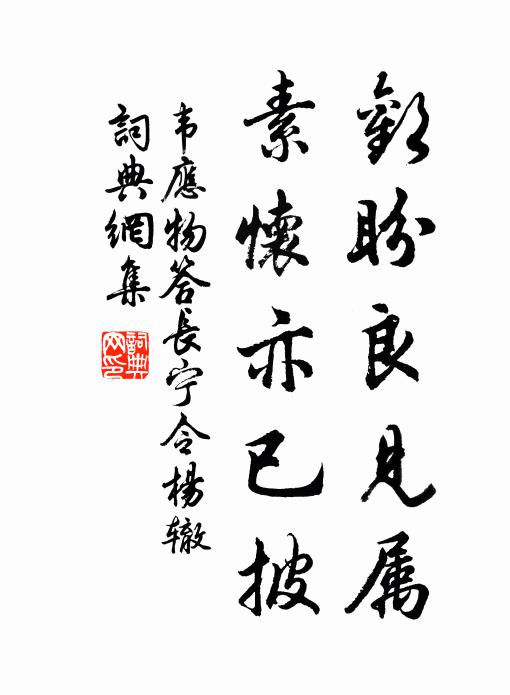 歡盼良見属
素懷亦已披
韦應物答長宁令楊辙
詞典網集
詞典
网印